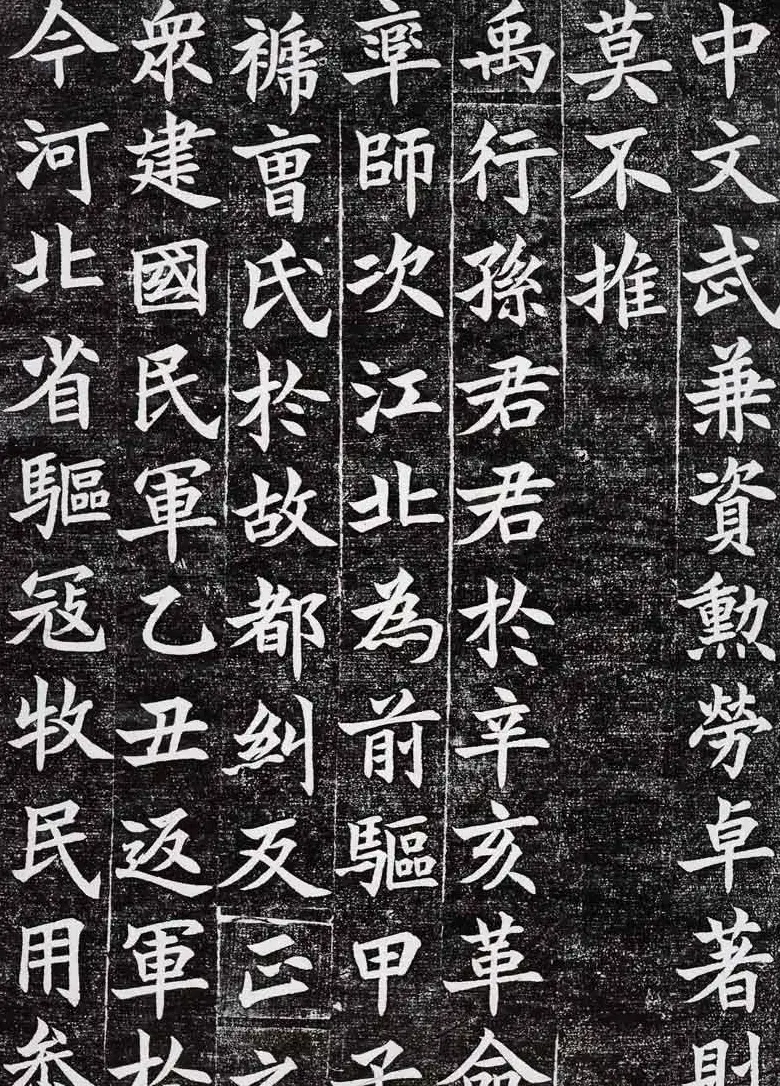 中文武兼資勳勞卓著則
莫不推
禹行孫君君於辛亥革命
率師次江北為前驅甲子
褫曹氏於故都糾反正之
眾建國民軍乙丑返軍於
今河北省驅寇牧民用參